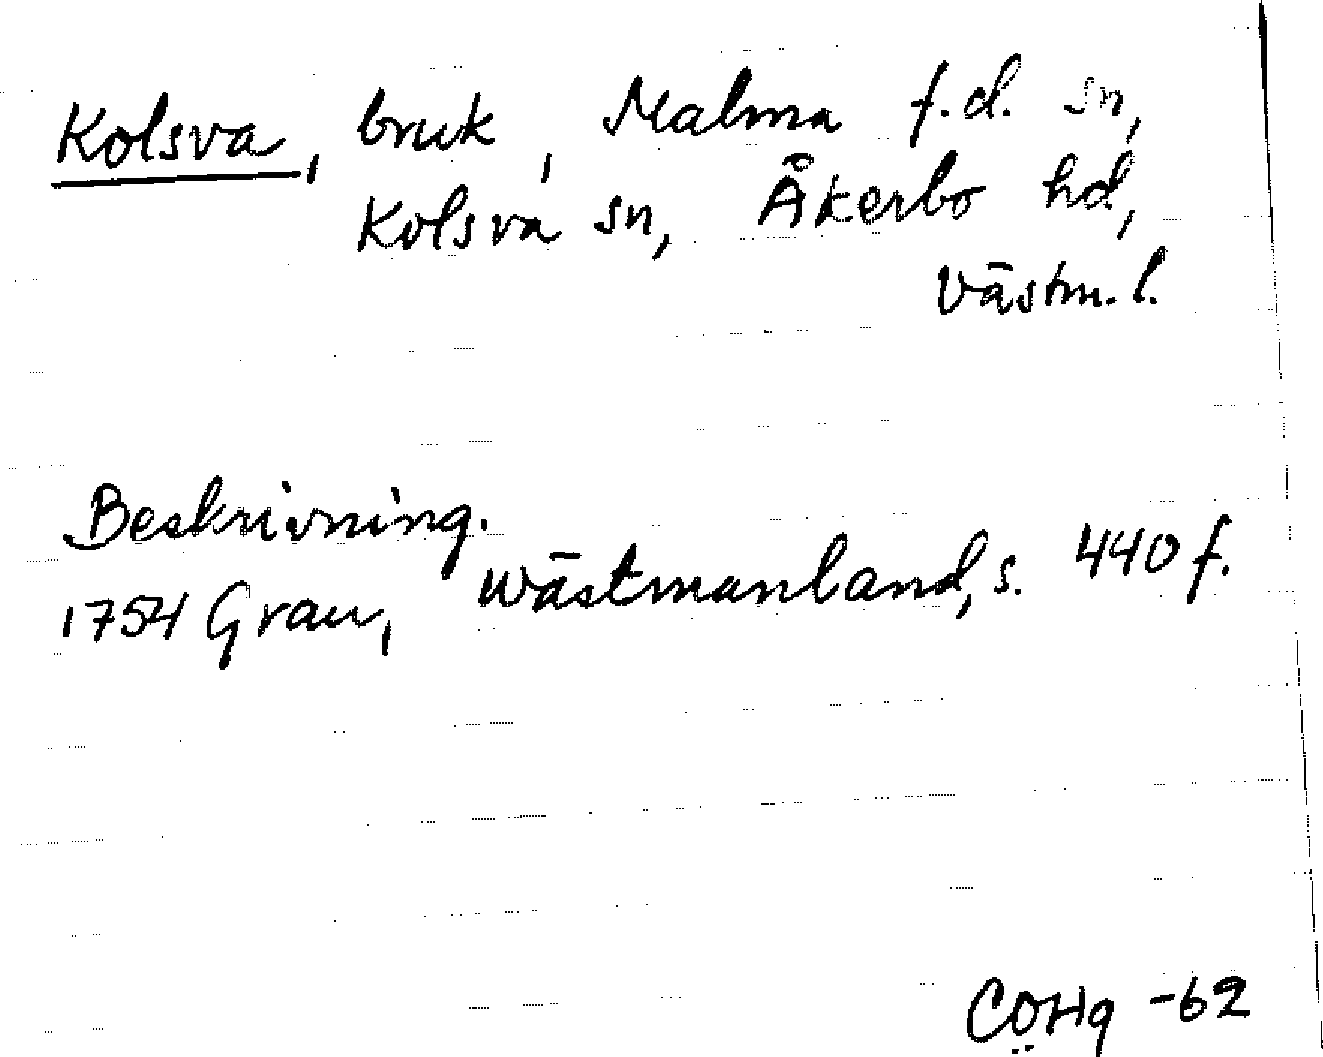 Kolsva, bruk, Malma f.d. sn,
Kolsva sn, Åkerbo hd,
Västm. l.
Beskrivning.
1754 Grau, Wästmanland, s. 440 f.
CÖHg -62